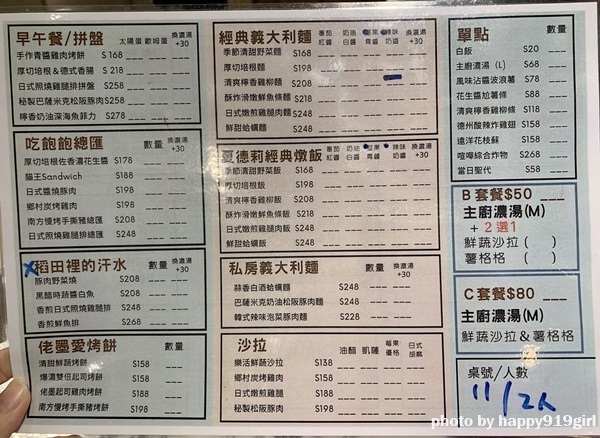 早午餐/拼盤 太陽蛋 歐姆蛋 換濃湯+30
手作青醬雞肉烤餅 $168
厚切培根&德式香腸 $218
日式照燒雞腿排拼盤 $258
秘製巴薩米克松阪豚肉 $258
檸香奶油深海魚菲力 $278
吃飽飽總匯 數量 換濃湯+30
厚切培根佐香濃花生醬 $178
貓王Sandwich $188
日式醬燒豚肉 $198
鄉村炭烤雞肉 $198
南方慢烤手撕豬總匯 $208
日式照燒雞腿排總匯 $248
稻田裡的汗水 數量 換濃湯+30
豚肉野菜燒 $208
黑醋時蔬醬白魚 $208
香煎日式照燒雞腿排 $248
香煎鮮魚排 $268
佬墨愛烤餅 數量
清甜鮮蔬烤餅 $158
爆濃雙倍起司烤餅 $158
佬墨起司雞肉烤餅 $188
南方慢烤手撕豬烤餅 $198
經典義大利麵 蕃茄紅醬 奶油白醬 堅果青醬 辣味奶醬
季節清甜野菜麵 $168
厚切培根麵 $198
清爽檸香雞柳麵 $208
酥炸滑嫩鮮魚條麵 $218
日式嫩煎雞腿排麵 $248
鮮甜蛤蠣麵 $188
夏德莉經典燉飯 蕃茄紅醬 奶油白醬 堅果青醬 辣味奶醬
季節清甜野菜飯 $168
厚切培根飯 $198
清爽檸香雞柳飯 $208
酥炸滑嫩鮮魚條飯 $218
日式嫩煎雞腿排飯 $248
鮮甜蛤蠣飯 $188
私房義大利麵 數量 換濃湯+30
蒜香白酒蛤蠣麵 $248
巴薩米克奶油松阪豚肉麵 $248
韓式辣味泡菜豚肉麵 $248
沙拉 油醋 凱薩 莓果優格 日式胡麻
樂活鮮蔬沙拉 $138
鄉村炭烤雞肉 $158
佬墨辣味雞肉 $188
秘製松阪豚肉 $198
單點 數量
白飯 $20
主廚濃湯(L) $68
風味沾醬波浪薯 $78
花生醬尬薯條 $88
清爽檸香雞柳條 $118
德州酸辣炸雞翅 $158
遠洋花枝酥 $158
喧嘩綜合炸物 $268
當日聖代 $58
B套餐$50
主廚濃湯(M)
+2選1
鮮蔬沙拉( )
薯格格( )
C套餐$80
主廚濃湯(M)
鮮蔬沙拉&薯格格
桌號/人數
11/2人
photo by happy919girl